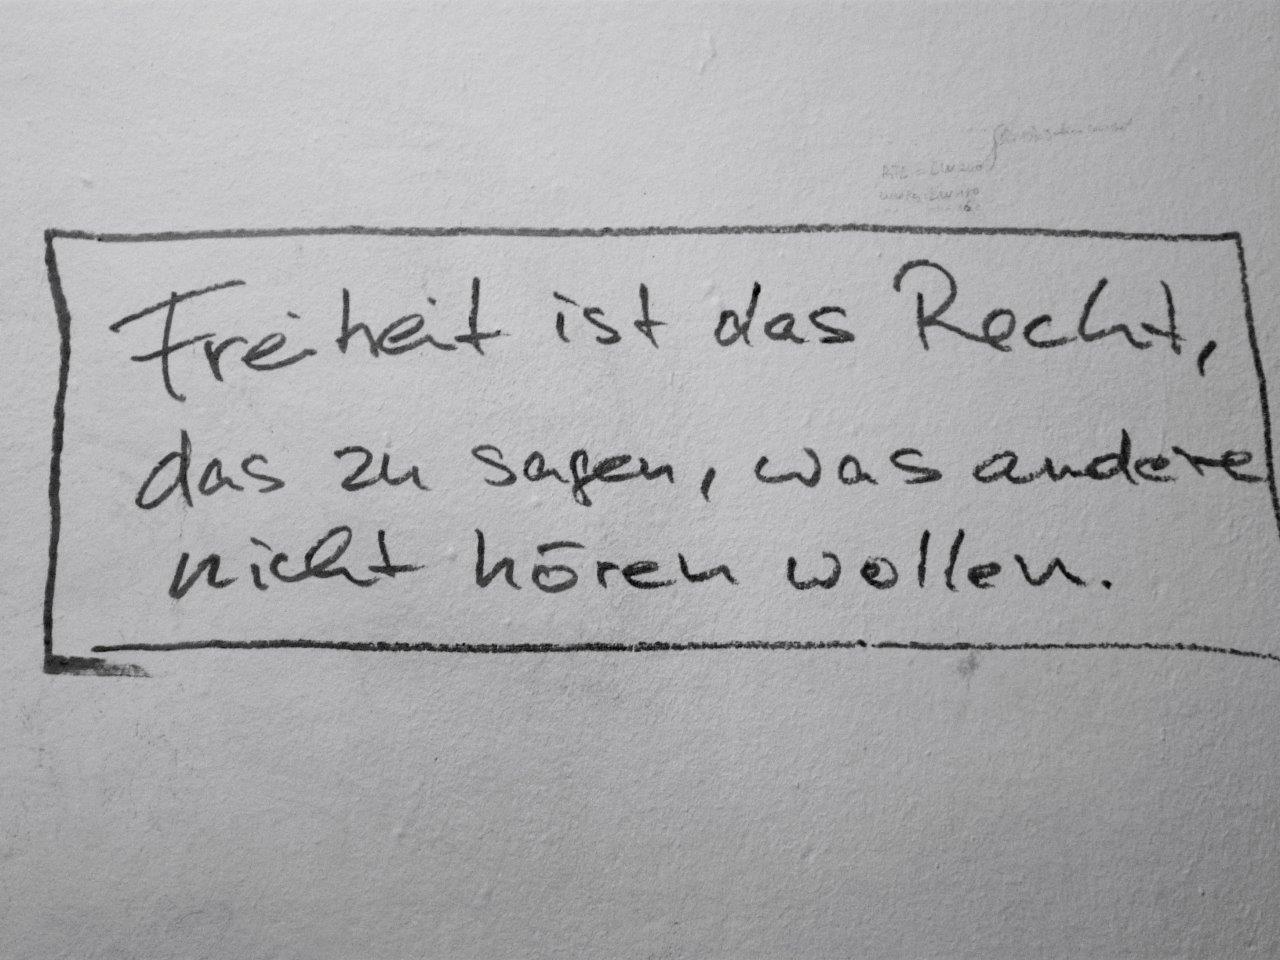 Freiheit ist das Recht,
das zu sagen, was andere
nicht hören wollen.